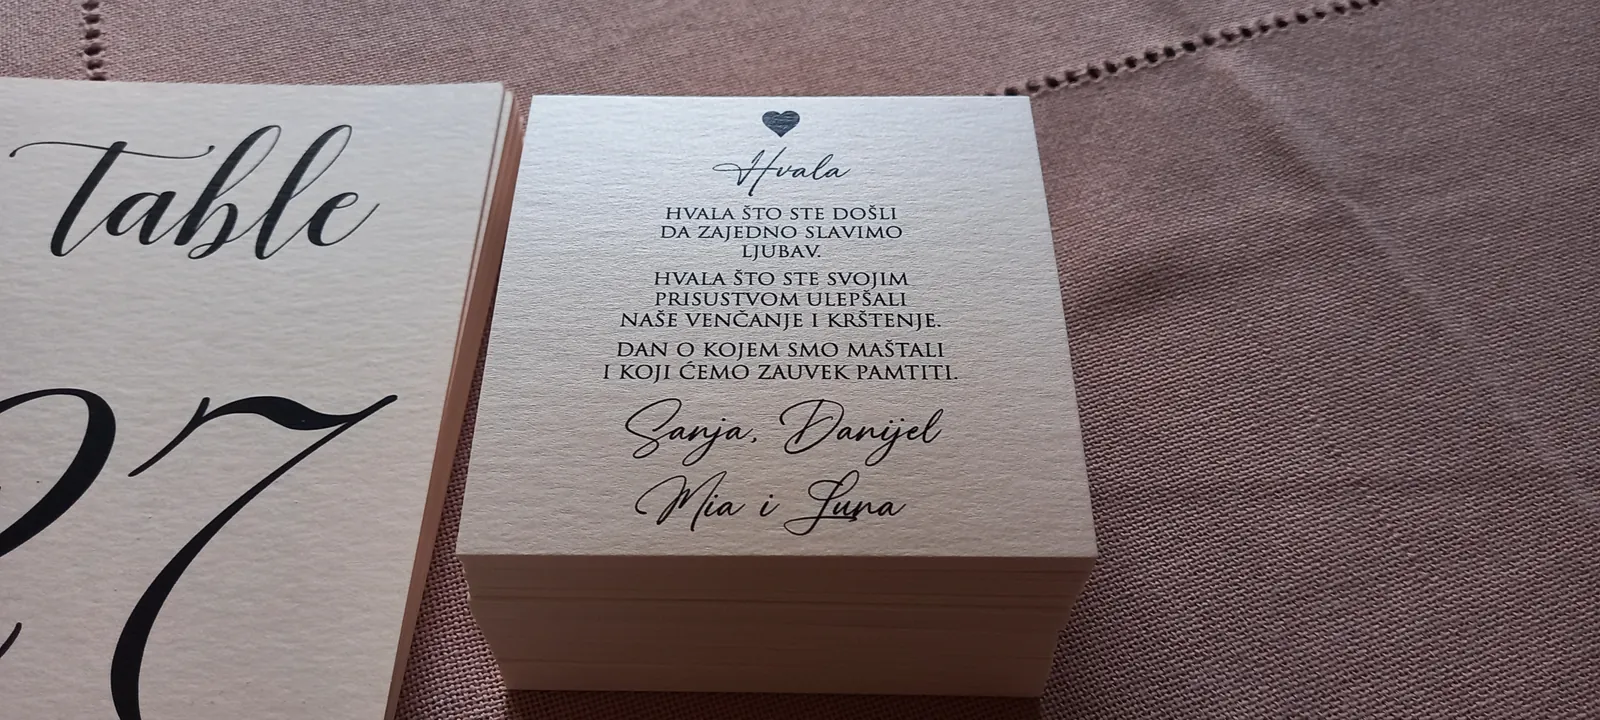 Table
27
Hvala
HVALA ŠTO STE DOŠLI
DA ZAJEDNO SLAVIMO
LJUBAV.
HVALA ŠTO STE SVOJIM
PRISUSTVOM ULEPŠALI
NAŠE VENČANJE I KRŠTENJE.
DAN O KOJEM SMO MAŠTALI
I KOJI ĆEMO ZAUVEK PAMTITI.
Sanja, Danijel
Mia i Luna